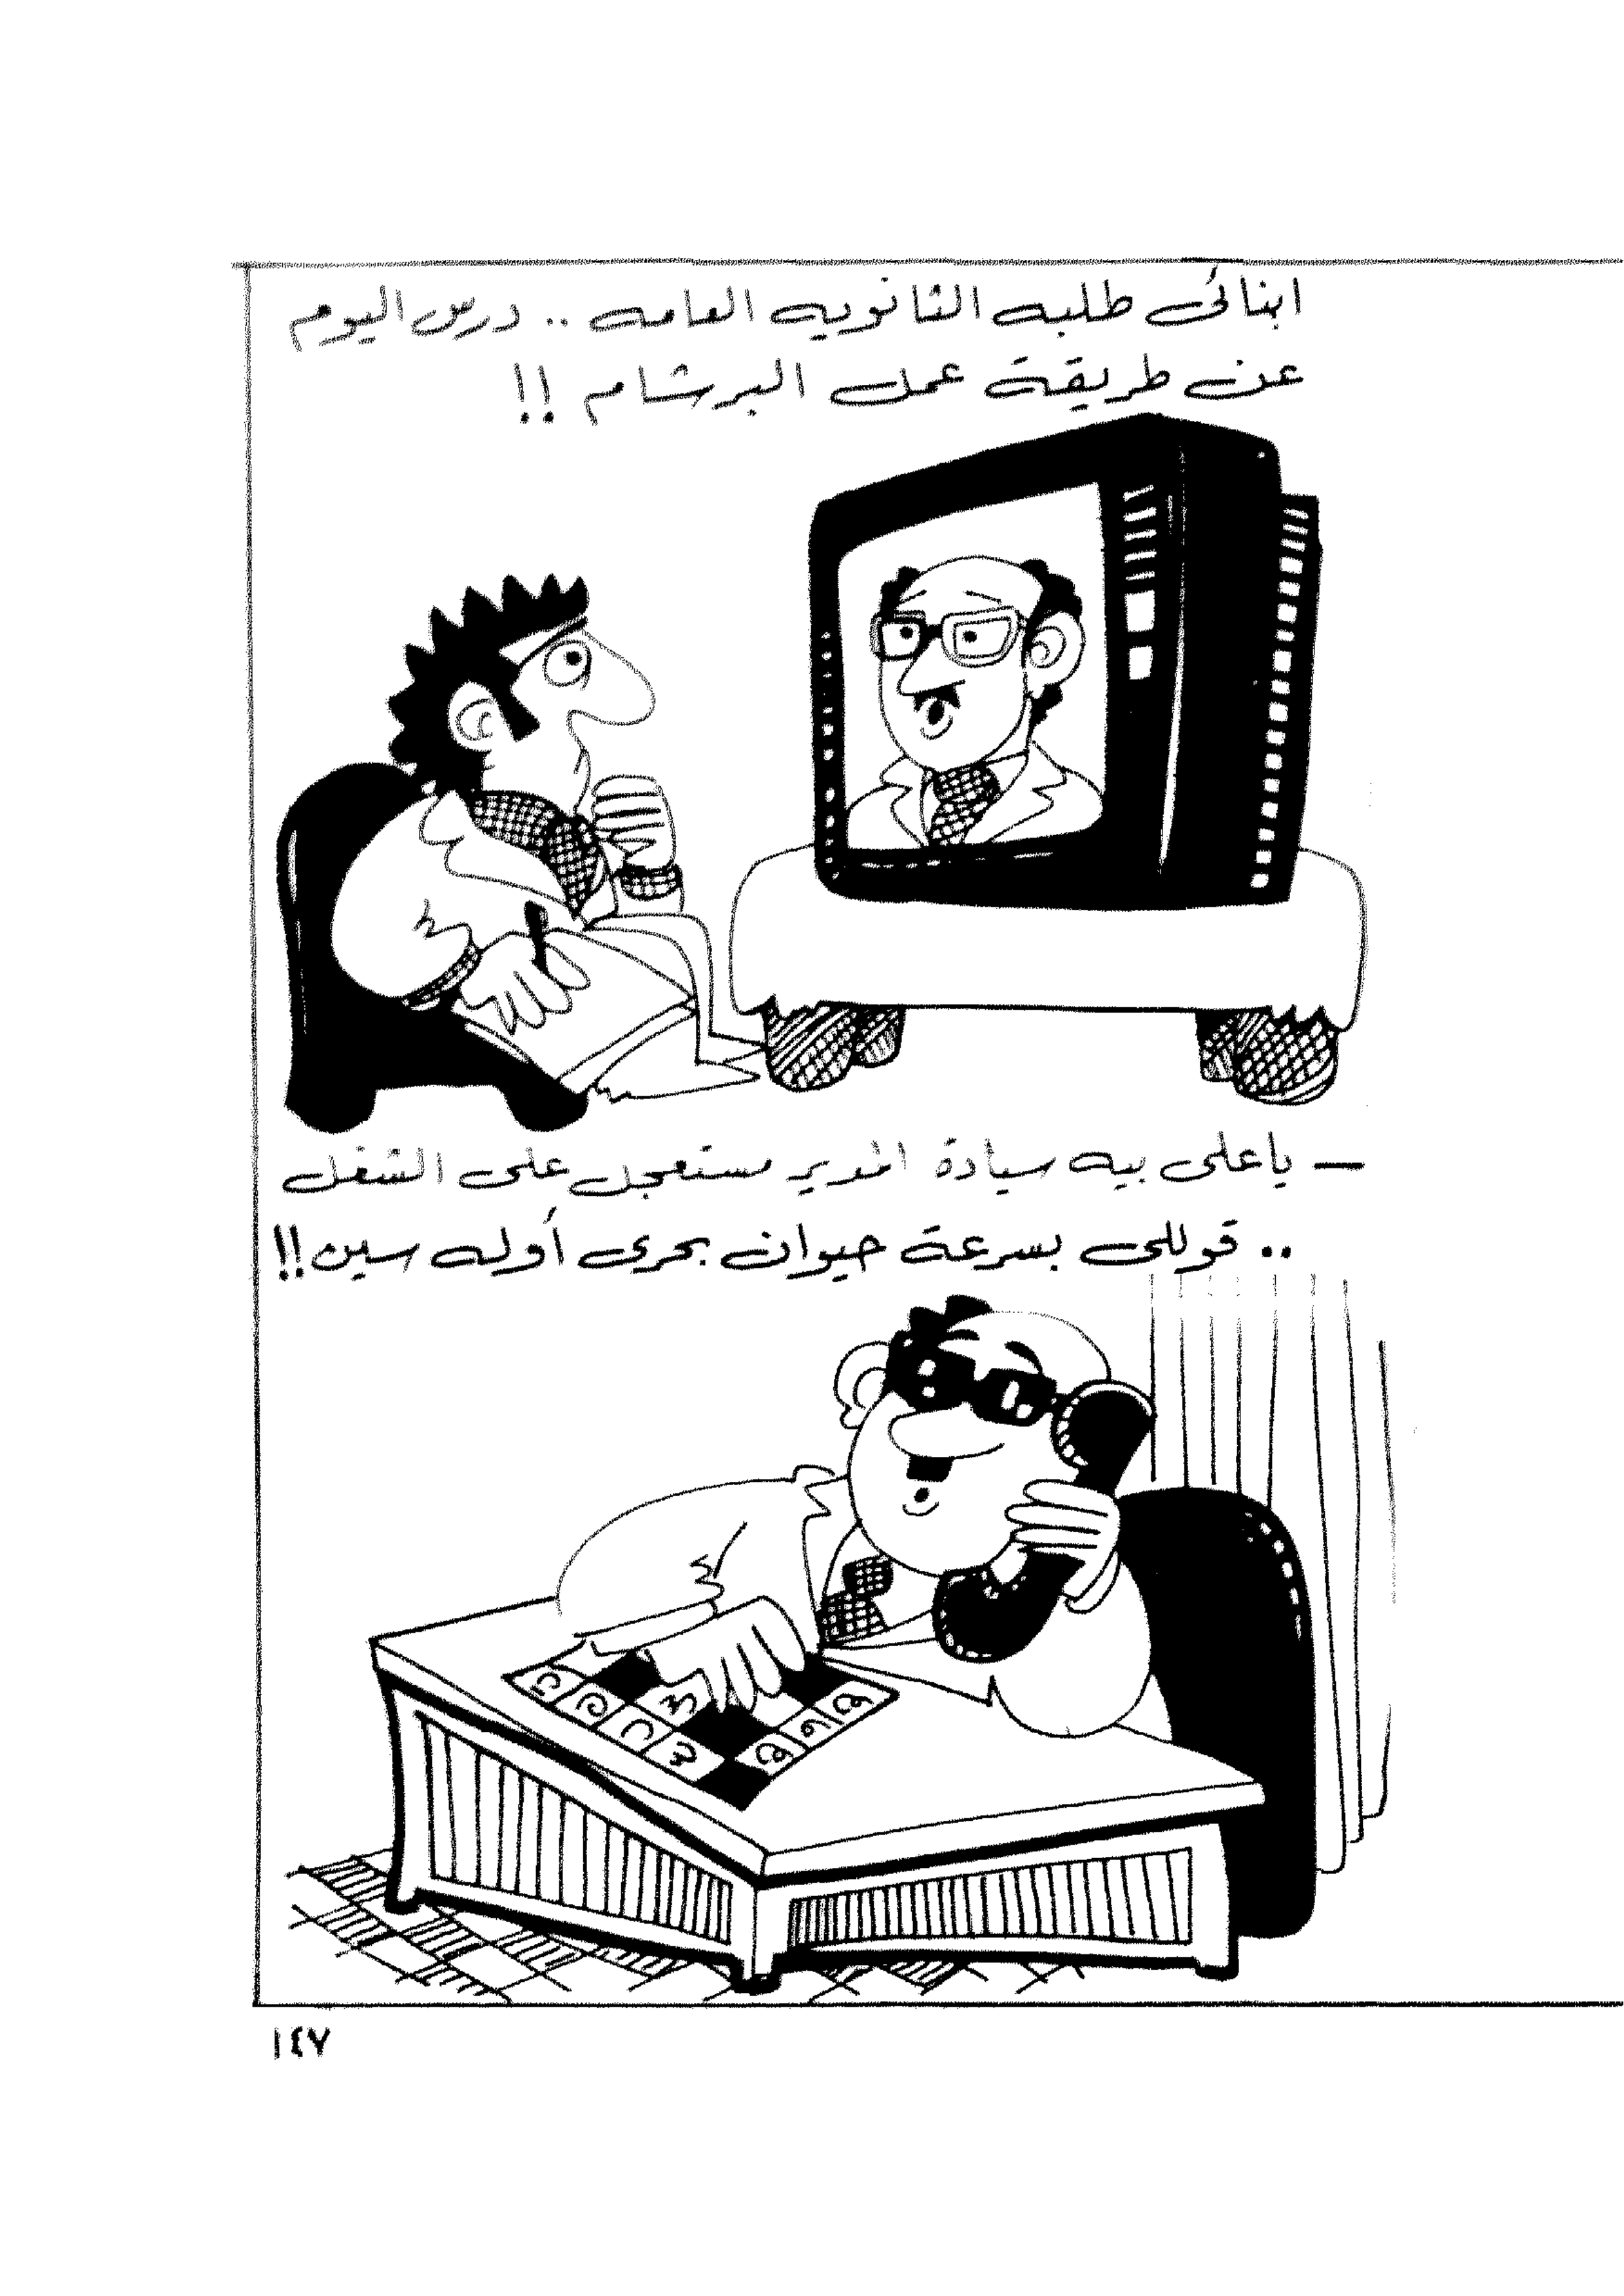 ابنائى طلبه الثانويه العامه .. درس اليوم
عن طريقة عمل البرشام !!
— ياعلى بيه سيادة المدير مستعجل على الشغل
.. قوللى بسرعة حيوان بحرى أوله سين !!
١٤٧